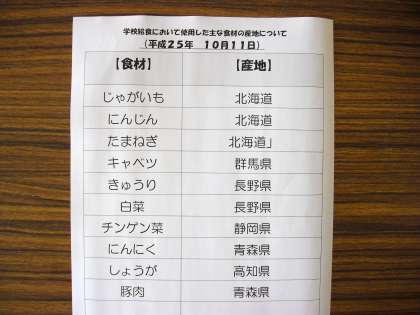 学校給食において使用した主な食材の産地について
(平成25年 10月11日)
【食材】 【産地】
じゃがいも 北海道
にんじん 北海道
たまねぎ 北海道」
キャベツ 群馬県
きゅうり 長野県
白菜 長野県
チンゲン菜 静岡県
にんにく 青森県
しょうが 高知県
豚肉 青森県